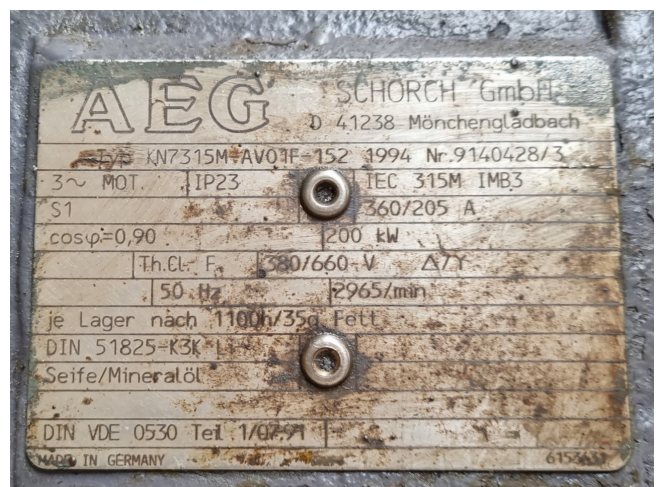 AEG SCHORCH GmbH
D 41238 Mönchengladbach
Typ KN7315M-AV01F-152 1994 Nr.9140428/3
3~ MOT. IP23 IEC 315M IMB3
S1 360/205 A
cosφ=0,90 200 kW
Th.Cl. F 380/660 V Δ/Y
50 Hz 2965/min
je Lager nach 1100h/35g Fett
DIN 51825-K3K Li-
Seife/Mineralöl
DIN VDE 0530 Teil 1/07.91
MADE IN GERMANY